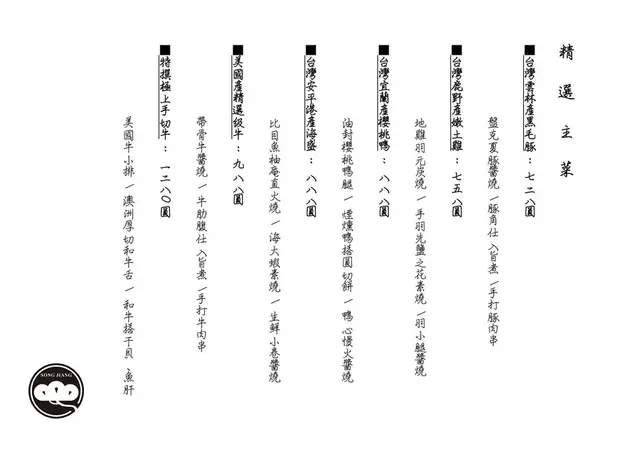 精選主菜
■台灣雲林產黑毛豚：七二八圓
盤克夏豚醬燒／豚角仕入旨煮／手打豚肉串
■台灣鹿野產嫩土雞：七五八圓
地雞羽元炭燒／手羽先鹽之花素燒／羽小腿醬燒
■台灣宜蘭產櫻桃鴨：八八八圓
油封櫻桃鴨腿／煙燻鴨搭圓切餅／鴨心慢火醬燒
■台灣安平港產海盛：八八八圓
比目魚柚庵直火燒／海大蝦素燒／生鮮小卷醬燒
■美國產精選級牛：九八八圓
帶骨牛醬燒／牛肋腹仕入旨煮／手打牛肉串
■特撰極上手切牛：一二八〇圓
美國牛小排／澳洲厚切和牛舌／和牛搭干貝．魚肝
SONG JIANG